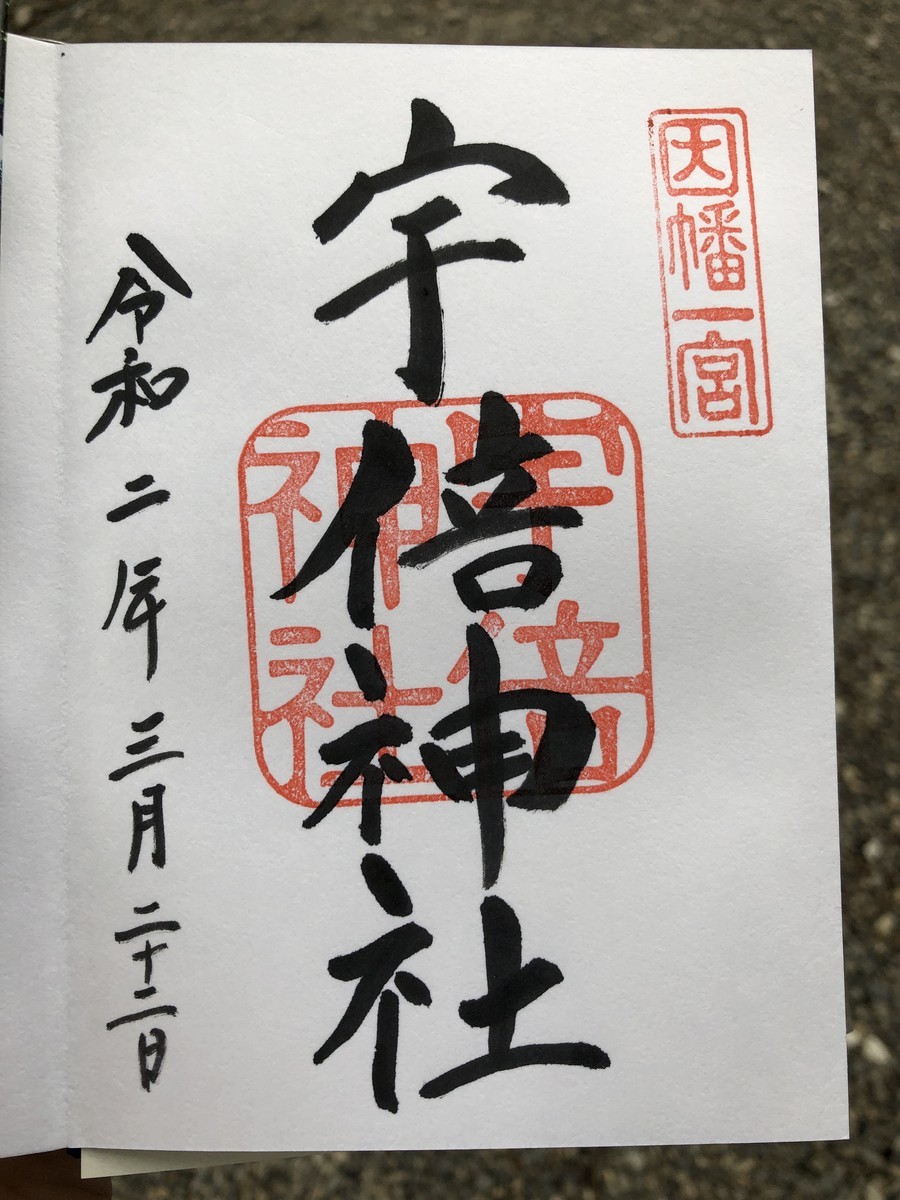 因幡一宮
宇倍神社
宇倍
神社
令和二年三月二十二日